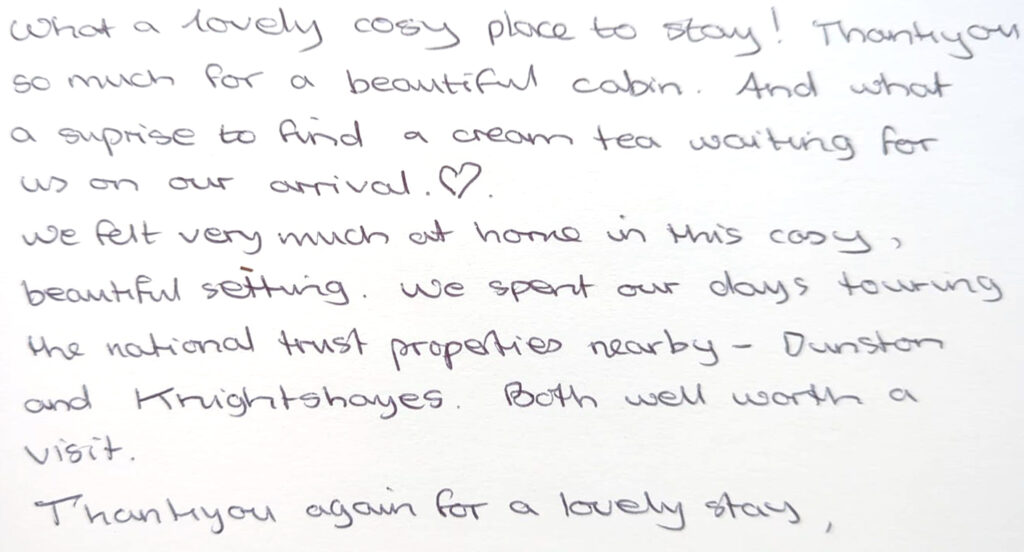 What a lovely cosy place to stay! Thankyou
so much for a beautiful cabin. And what
a suprise to find a cream tea waiting for
us on our arrival.♡.
We felt very much at home in this cosy,
beautiful setting. We spent our days touring
the national trust properties nearby - Dunston
and Knightshayes. Both well worth a
visit.
Thankyou again for a lovely stay,